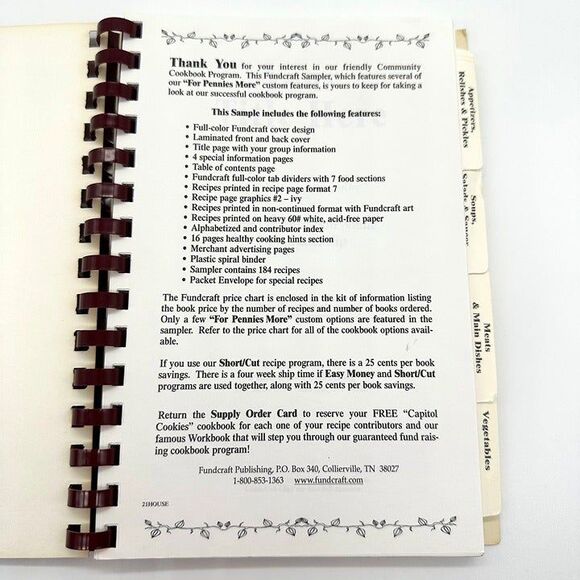 Thank You for your interest in our friendly Community
Cookbook Program. This Fundcraft Sampler, which features several of
our "For Pennies More" custom features, is yours to keep for taking a
look at our successful cookbook program.
This Sample includes the following features:
• Full-color Fundcraft cover design
• Laminated front and back cover
• Title page with your group information
• 4 special information pages
• Table of contents page
• Fundcraft full-color tab dividers with 7 food sections
• Recipes printed in recipe page format 7
• Recipe page graphics #2 – ivy
• Recipes printed in non-continued format with Fundcraft art
• Recipes printed on heavy 60# white, acid-free paper
• Alphabetized and contributor index
• 16 pages healthy cooking hints section
• Merchant advertising pages
• Plastic spiral binder
• Sampler contains 184 recipes
• Packet Envelope for special recipes
The Fundcraft price chart is enclosed in the kit of information listing
the book price by the number of recipes and number of books ordered.
Only a few "For Pennies More" custom options are featured in the
sampler. Refer to the price chart for all of the cookbook options avail-
able.
If you use our Short/Cut recipe program, there is a 25 cents per book
savings. There is a four week ship time if Easy Money and Short/Cut
programs are used together, along with 25 cents per book savings.
Return the Supply Order Card to reserve your FREE "Capitol
Cookies" cookbook for each one of your recipe contributors and our
famous Workbook that will step you through our guaranteed fund rais-
ing cookbook program!
Fundcraft Publishing, P.O. Box 340, Collierville, TN 38027
1-800-853-1363 www.fundcraft.com
21HOUSE
Appetizers,
Relishes & Pickles
Soups,
Salads & Sauces
Meats
& Main Dishes
Vegetables